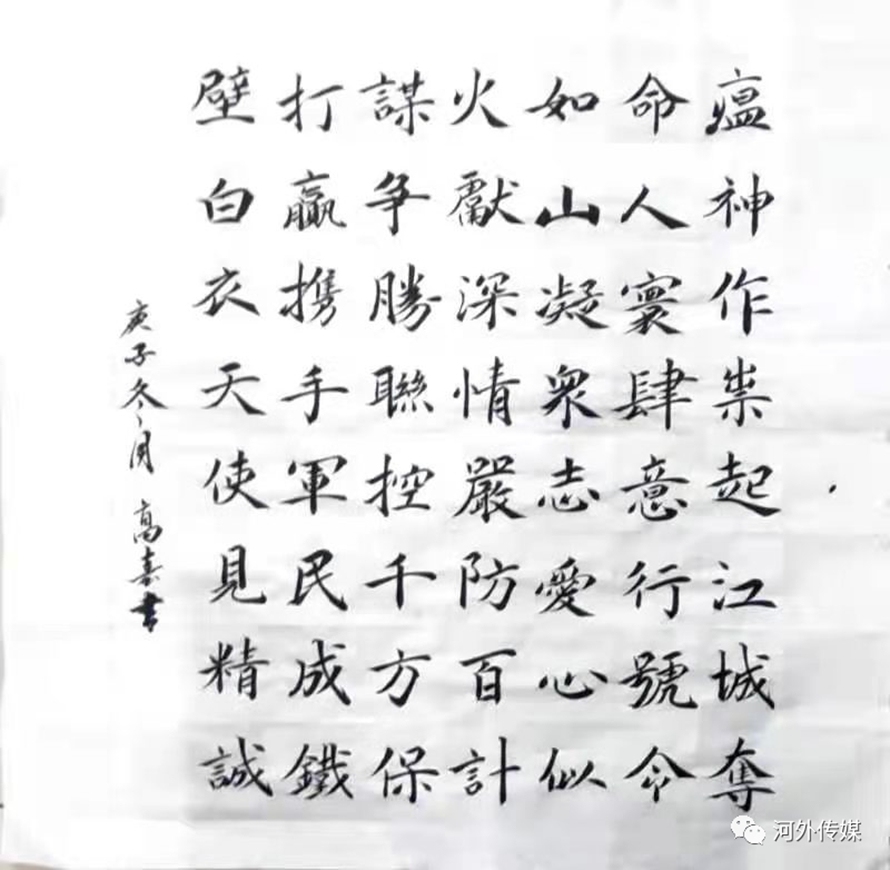 瘟神作祟起江城奪
命人寰肆意行號令
如山凝衆志愛心似
火獻深情嚴防百計
謀争勝聯控千方保
打贏携手軍民成鐵
壁白衣天使見精誠
庚子冬月 高嘉書
河外传媒